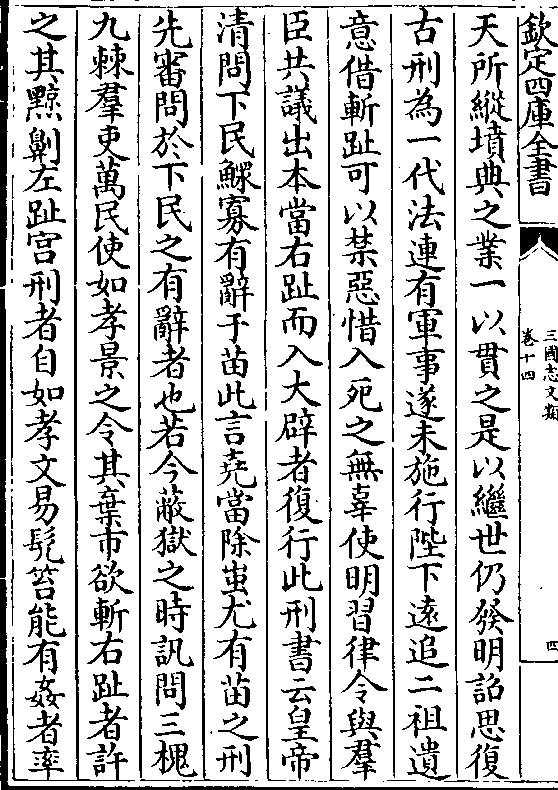 欽定四庫全書
三國志文類
卷十四
四
天所縱墳典之業一以貫之是以繼世仍發明詔思復
古刑為一代法連有軍事遂未施行陛下遠追二祖遺
意借斬趾可以禁惡惜入死之無辜使明習律令與羣
臣共議出本當右趾而入大辟者復行此刑書云皇帝
清問下民鰥寡有辭于苗此言堯當除蚩尤有苗之刑
先審問於下民之有辭者也若今蔽獄之時訊問三槐
九棘羣吏萬民使如孝景之令其棄市欲斬右趾者許
之其黥劓左趾宫刑者自如孝文易髠笞能有姦者率